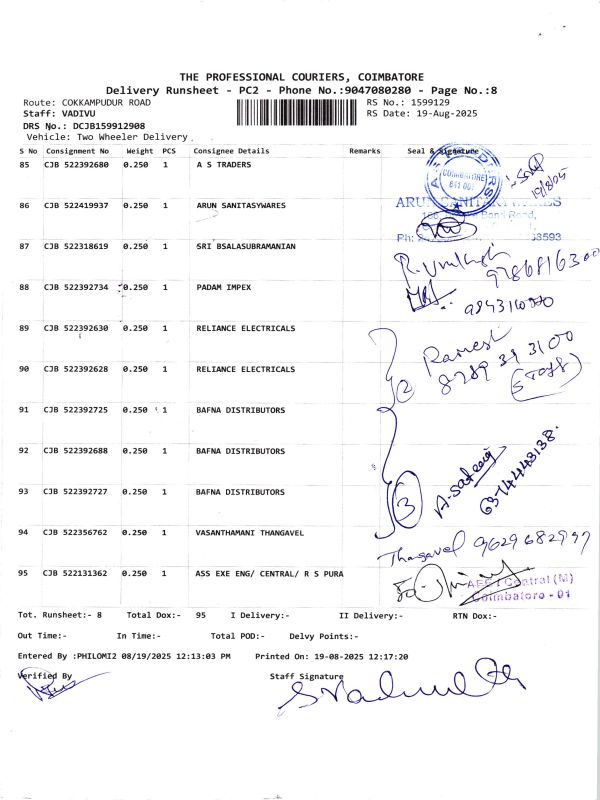 THE PROFESSIONAL COURIERS, COIMBATORE
Delivery Runsheet - PC2 - Phone No.:9047080280 - Page No.:8
Route: COKKAMPUDUR ROAD
RS No.: 1599129
Staff: VADIVU
RS Date: 19-Aug-2025
DRS No.: DCJB159912908
Vehicle: Two Wheeler Delivery
S No Consignment No Weight PCS Consignee Details Remarks Seal & Signature
85 CJB 522392680 0.250 1 A S TRADERS
COIMBATORE
641 001
19/8/25
86 CJB 522419937 0.250 1 ARUN SANITASYWARES
ARUN SANITARYWARES
Ph:
87 CJB 522318619 0.250 1 SRI BSALASUBRAMANIAN
88 CJB 522392734 0.250 1 PADAM IMPEX
89 CJB 522392630 0.250 1 RELIANCE ELECTRICALS
Ramesh
8789 39 3100
(STAFF)
90 CJB 522392628 0.250 1 RELIANCE ELECTRICALS
2
91 CJB 522392725 0.250 1 BAFNA DISTRIBUTORS
92 CJB 522392688 0.250 1 BAFNA DISTRIBUTORS
93 CJB 522392727 0.250 1 BAFNA DISTRIBUTORS
3
94 CJB 522356762 0.250 1 VASANTHAMANI THANGAVEL
Thangavel 9629682997
95 CJB 522131362 0.250 1 ASS EXE ENG/ CENTRAL/ R S PURA
Central (M)
Coimbatore - 01
Tot. Runsheet:- 8 Total Dox:- 95 I Delivery:- II Delivery:- RTN Dox:-
Out Time:- In Time:- Total POD:- Delvy Points:-
Entered By :PHILOMI2 08/19/2025 12:13:03 PM Printed On: 19-08-2025 12:17:20
Verified By Staff Signature